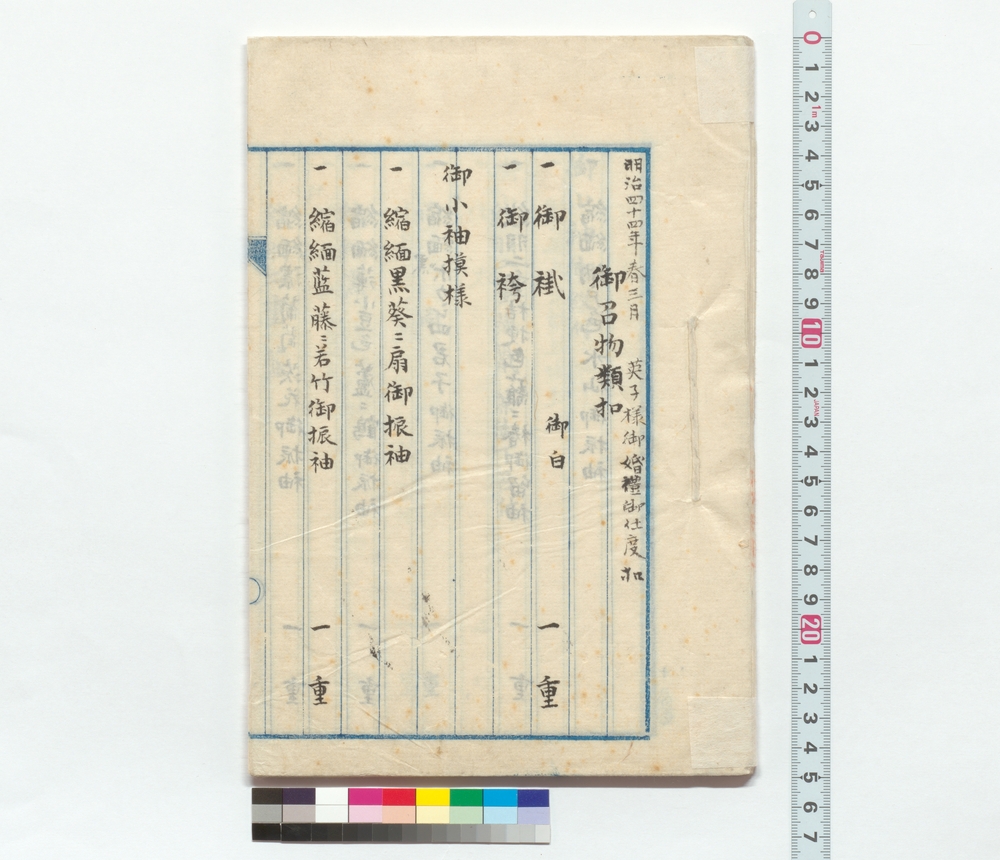 明治四十四年春三月 英子様御婚禮御仕度扣
御召物類扣
一 御褂 御白 一重
一 御袴
御小袖摸様
一 縮緬黒葵ニ扇御振袖
一 縮緬藍藤ニ若竹御振袖 一重
0
1
2
1m
3
4
5
6
7
8
9
10
1
2
JAPAN
3
4
5
6
7
8
9
20
1
2
3
4
5
6
7